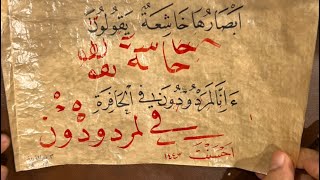 أَبْصَارُهَا خَاشِعَةٌ يَقُولُونَ
خاسعة يقو
ءَإِنَّا لَمَرْدُودُونَ فِي الْحَافِرَةِ
في لمردودون
أحسنت ١٤٤٣